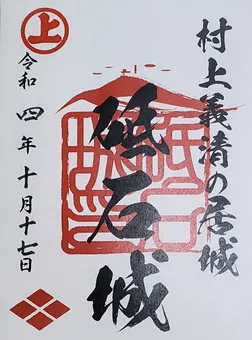 村上義清の居城
砥石城
上
令和四年十月十七日